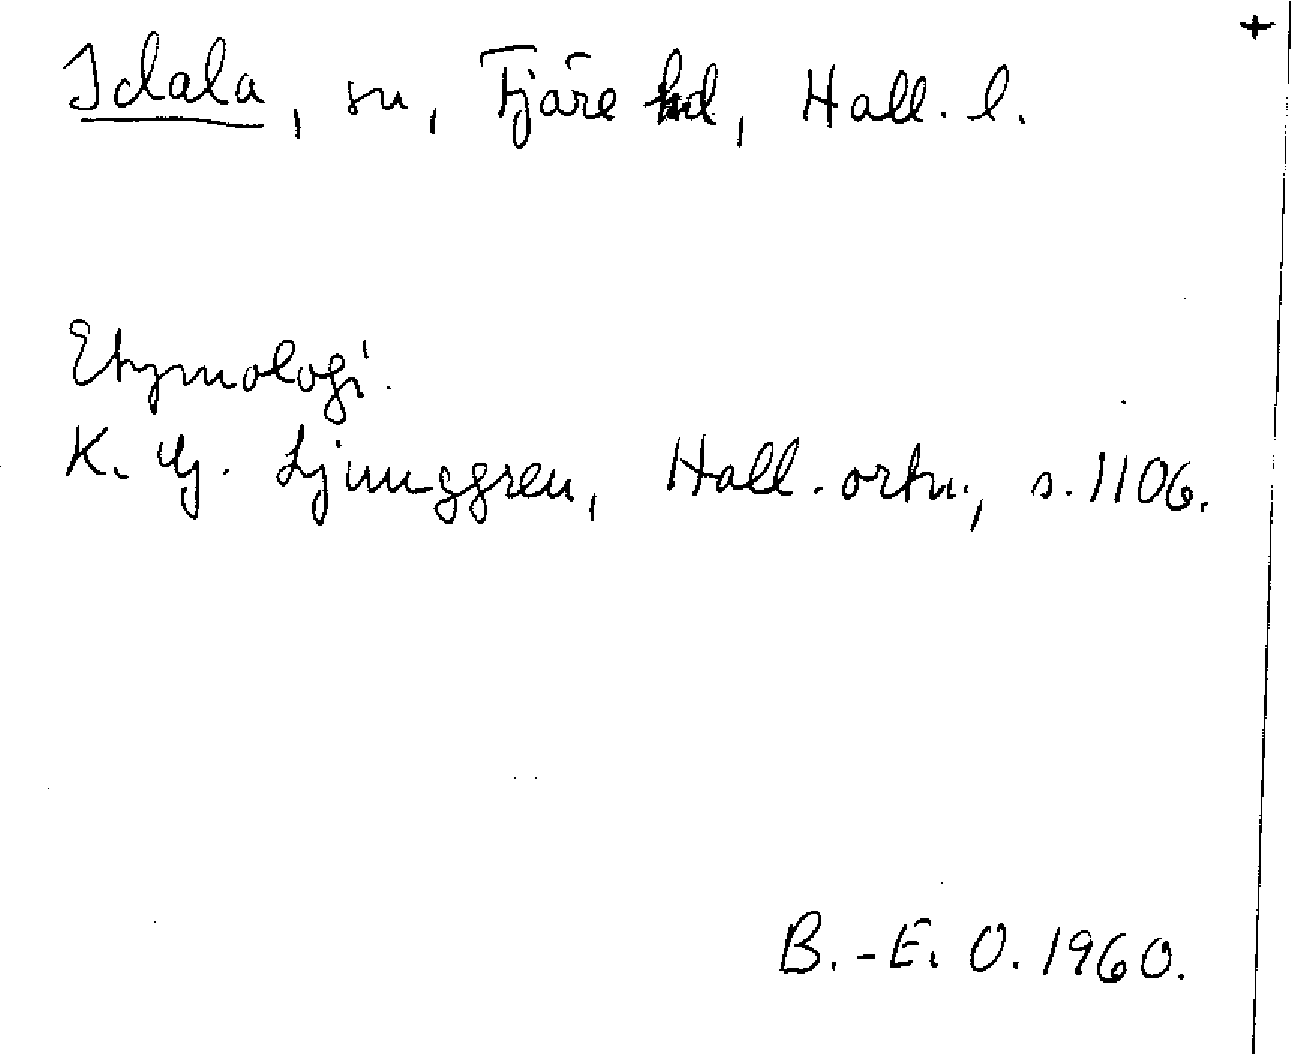 +
Idala, sn, Fjäre hd, Hall. l.
Etymologi.
K. G. Ljunggren, Hall. ortn., s. 1106.
B.-E. O. 1960.